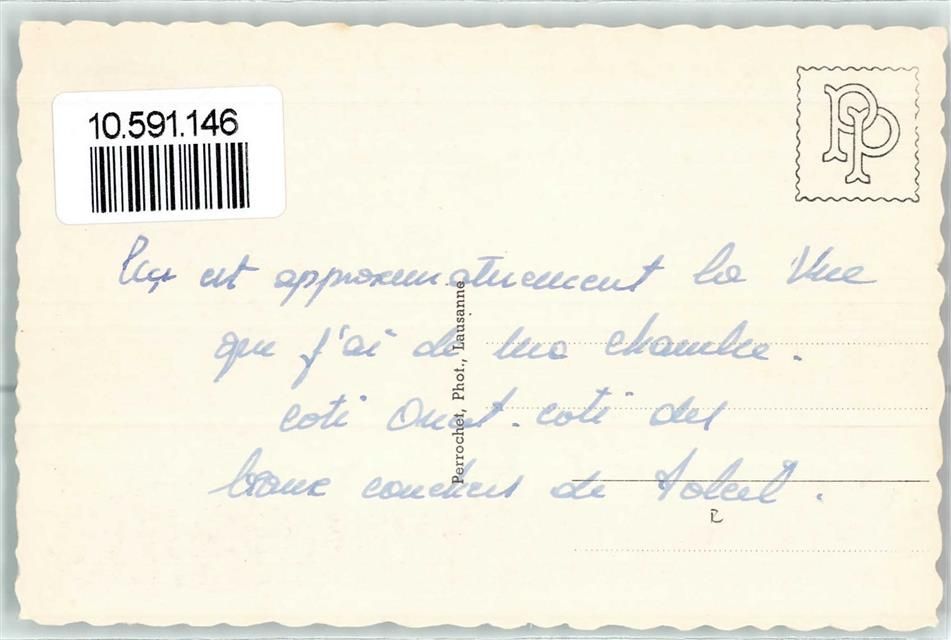 10.591.146
PP
est approximativement la Vue
que j'ai de ma chambre.
coté Ouest. coté des
beaux couchers de Soleil.
Perrochet, Phot., Lausanne